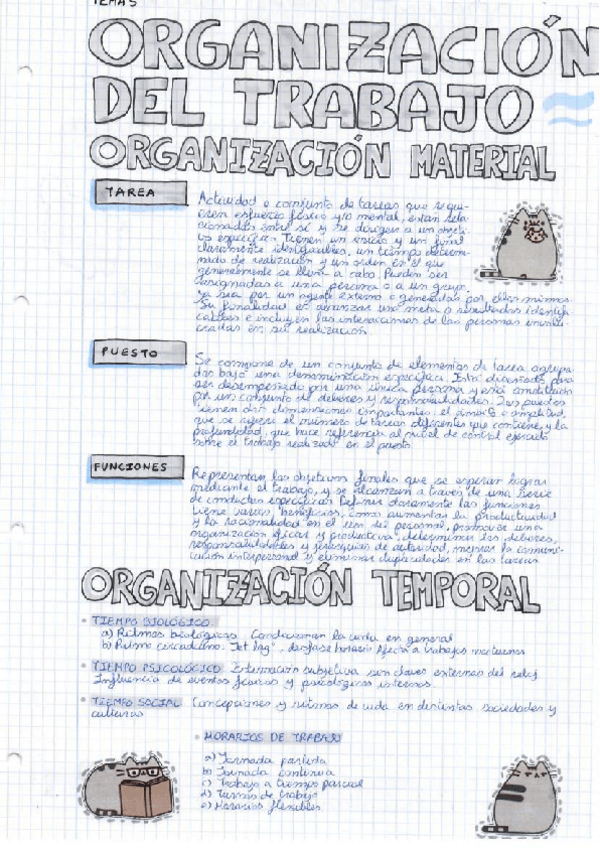 TEMA 5
ORGANIZACIÓN
DEL TRABAJO
ORGANIZACIÓN MATERIAL
TAREA
Actividad o conjunto de tareas que requi-
eren esfuerzo físico y/o mental, están rela-
cionadas entre sí y se dirigen a un objeti-
vo específico. Tienen un inicio y un final
claramente identificables, un tiempo determi-
nado de realización y un orden en el que
generalmente se lleva a cabo. Pueden ser
asignadas a una persona o a un grupo,
ya sea por un agente externo o generadas por ellos mismos.
Su finalidad es alcanzar una meta o resultados identifi-
cables e incluyen las interacciones de las personas involu-
cradas en su realización.
PUESTO
Se compone de un conjunto de elementos de tarea agrupa-
dos bajo una denominación específica. Está diseñado para
ser desempeñado por una única persona y está constituido
por un conjunto de deberes y responsabilidades. Los puestos
tienen dos dimensiones importantes: el ámbito o amplitud,
que se refiere al número de tareas diferentes que contiene, y la
profundidad, que hace referencia al nivel de control ejercido
sobre el trabajo realizado en el puesto.
FUNCIONES
Representan los objetivos finales que se esperan lograr
mediante el trabajo, y se alcanzan a través de una serie
de conductas específicas. Definir claramente las funciones
tiene varios beneficios, como aumentar la productividad
y la racionalidad en el uso del personal, promover una
organización eficaz y productiva, determinar los deberes,
responsabilidades y jerarquías de autoridad, mejorar la comuni-
cación interpersonal y eliminar duplicidades en las tareas.
ORGANIZACIÓN TEMPORAL
TIEMPO BIOLÓGICO
a) Ritmos biológicos. Condicionan la vida en general
b) Ritmo circadiano. "Jet lag", desfase horario afecta a trabajos nocturnos
TIEMPO PSICOLÓGICO Estimación subjetiva sin claves externas del reloj
Influencia de eventos físicos y psicológicos internos.
TIEMPO SOCIAL Concepciones y ritmos de vida en distintas sociedades y
culturas
HORARIOS DE TRABAJO
a) Jornada partida
b) Jornada continua
c) Trabajo a tiempo parcial
d) Turnos de trabajo
e) Horarios flexibles.